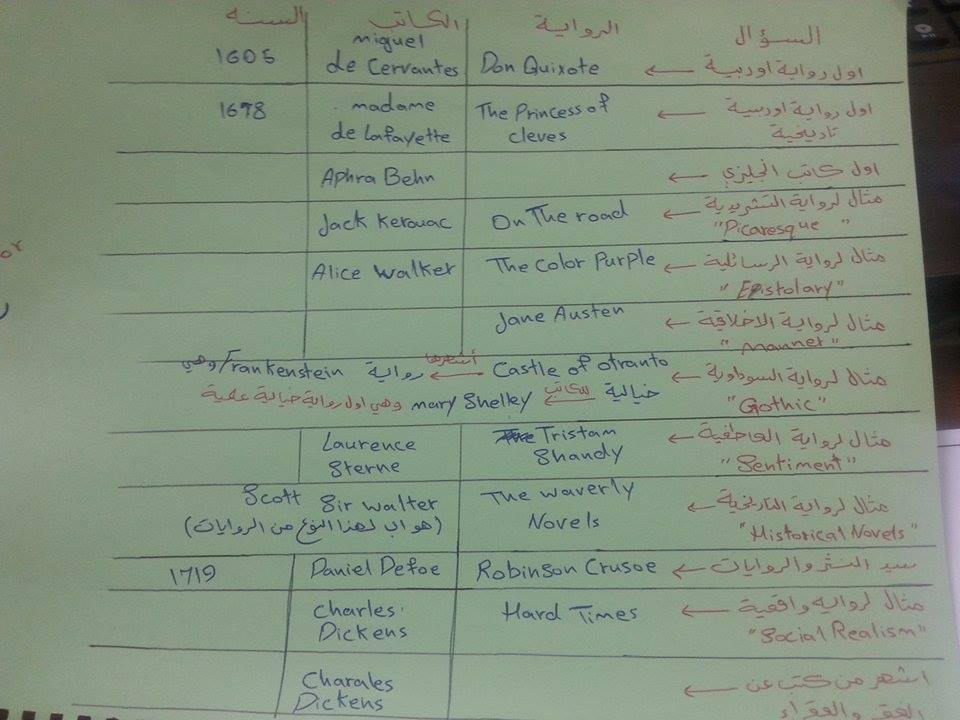 السؤال الرواية الكاتب السنه
اول رواية اوربية ← Don Quixote miguel de Cervantes 1605
اول رواية اوربية تاريخية ← The Princess of cleves madame de Lafayette 1678
اول كاتب انجليزي ← Aphra Behn
مثال لرواية التشردية "Picaresque" ← On The road Jack Kerouac
مثال لرواية الرسائلية "Epistolary" ← The Color Purple Alice Walker
مثال لرواية الاخلاقية "manner" ← Jane Austen
مثال لرواية السوداوية "Gothic" ← Castle of otranto أشهرها ← رواية Frankenstein/وهي
خيالية للكاتب ← mary Shelley وهي اول رواية خيالية علمية
مثال لرواية العاطفية "Sentiment" ← Tristam Shandy Laurence Sterne
مثال لرواية التاريخية "Historical Novels" ← The waverly Novels Sir walter Scott
(هو اب لهذا النوع من الروايات)
سيد النثر والروايات ← Robinson Crusoe Daniel Defoe 1719
مثال لرواية واقعية "Social Realism" ← Hard Times Charles Dickens
اشهر من كتب عن ← Charales Dickens
or